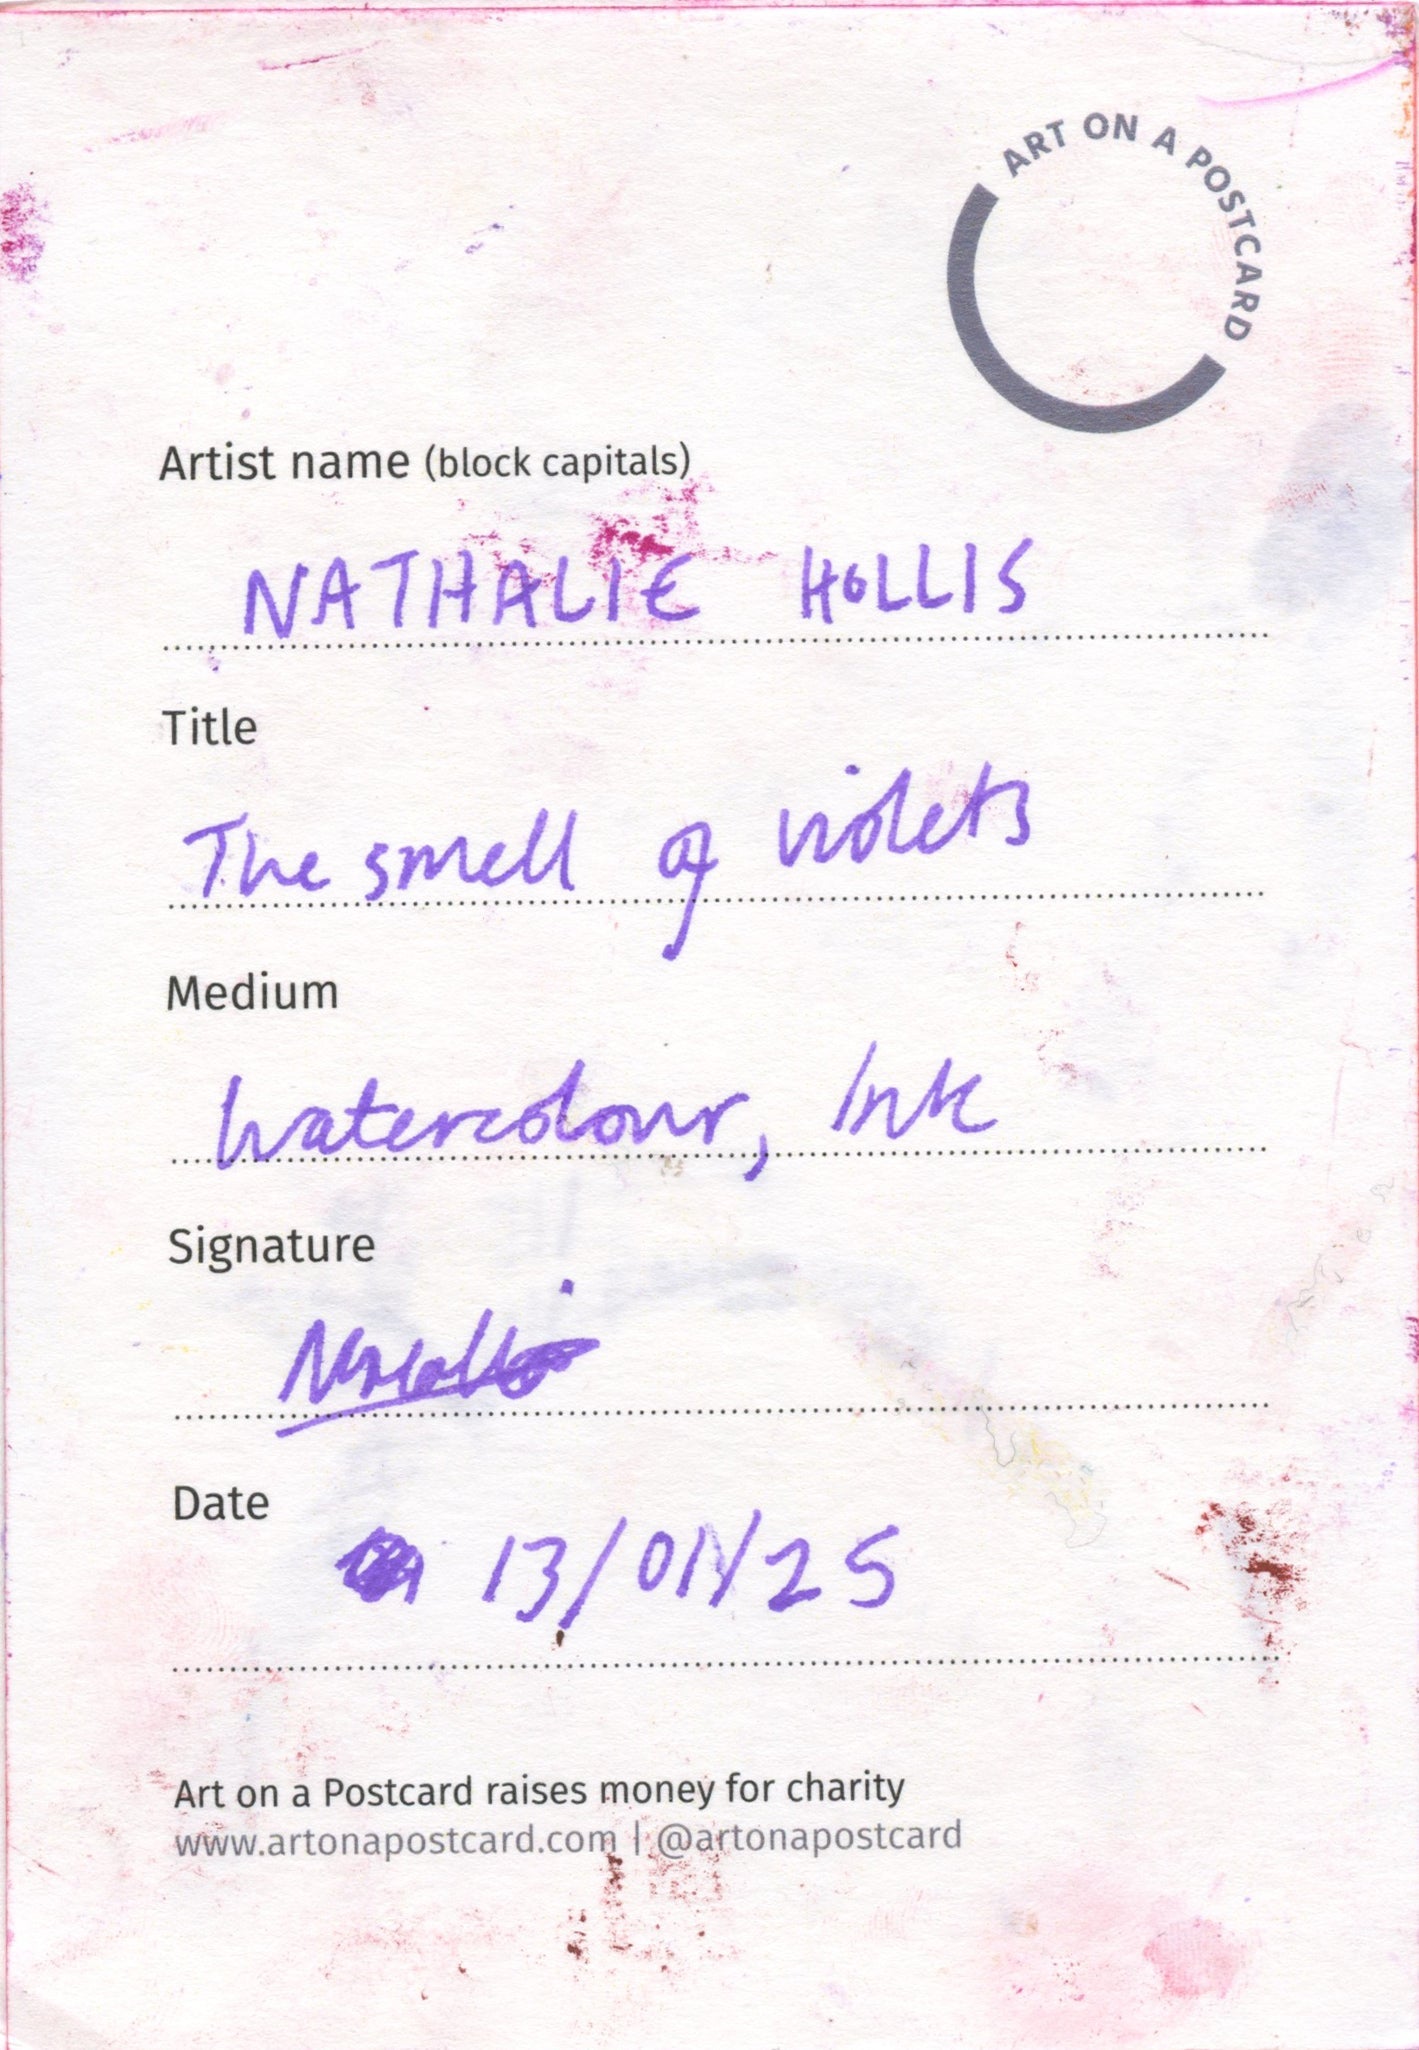 ART ON A POSTCARD
Artist name (block capitals)
NATHALIE HOLLIS
Title
The smell of violets
Medium
Watercolour, Ink
Signature
Date
13/01/25
Art on a Postcard raises money for charity
www.artonapostcard.com | @artonapostcard